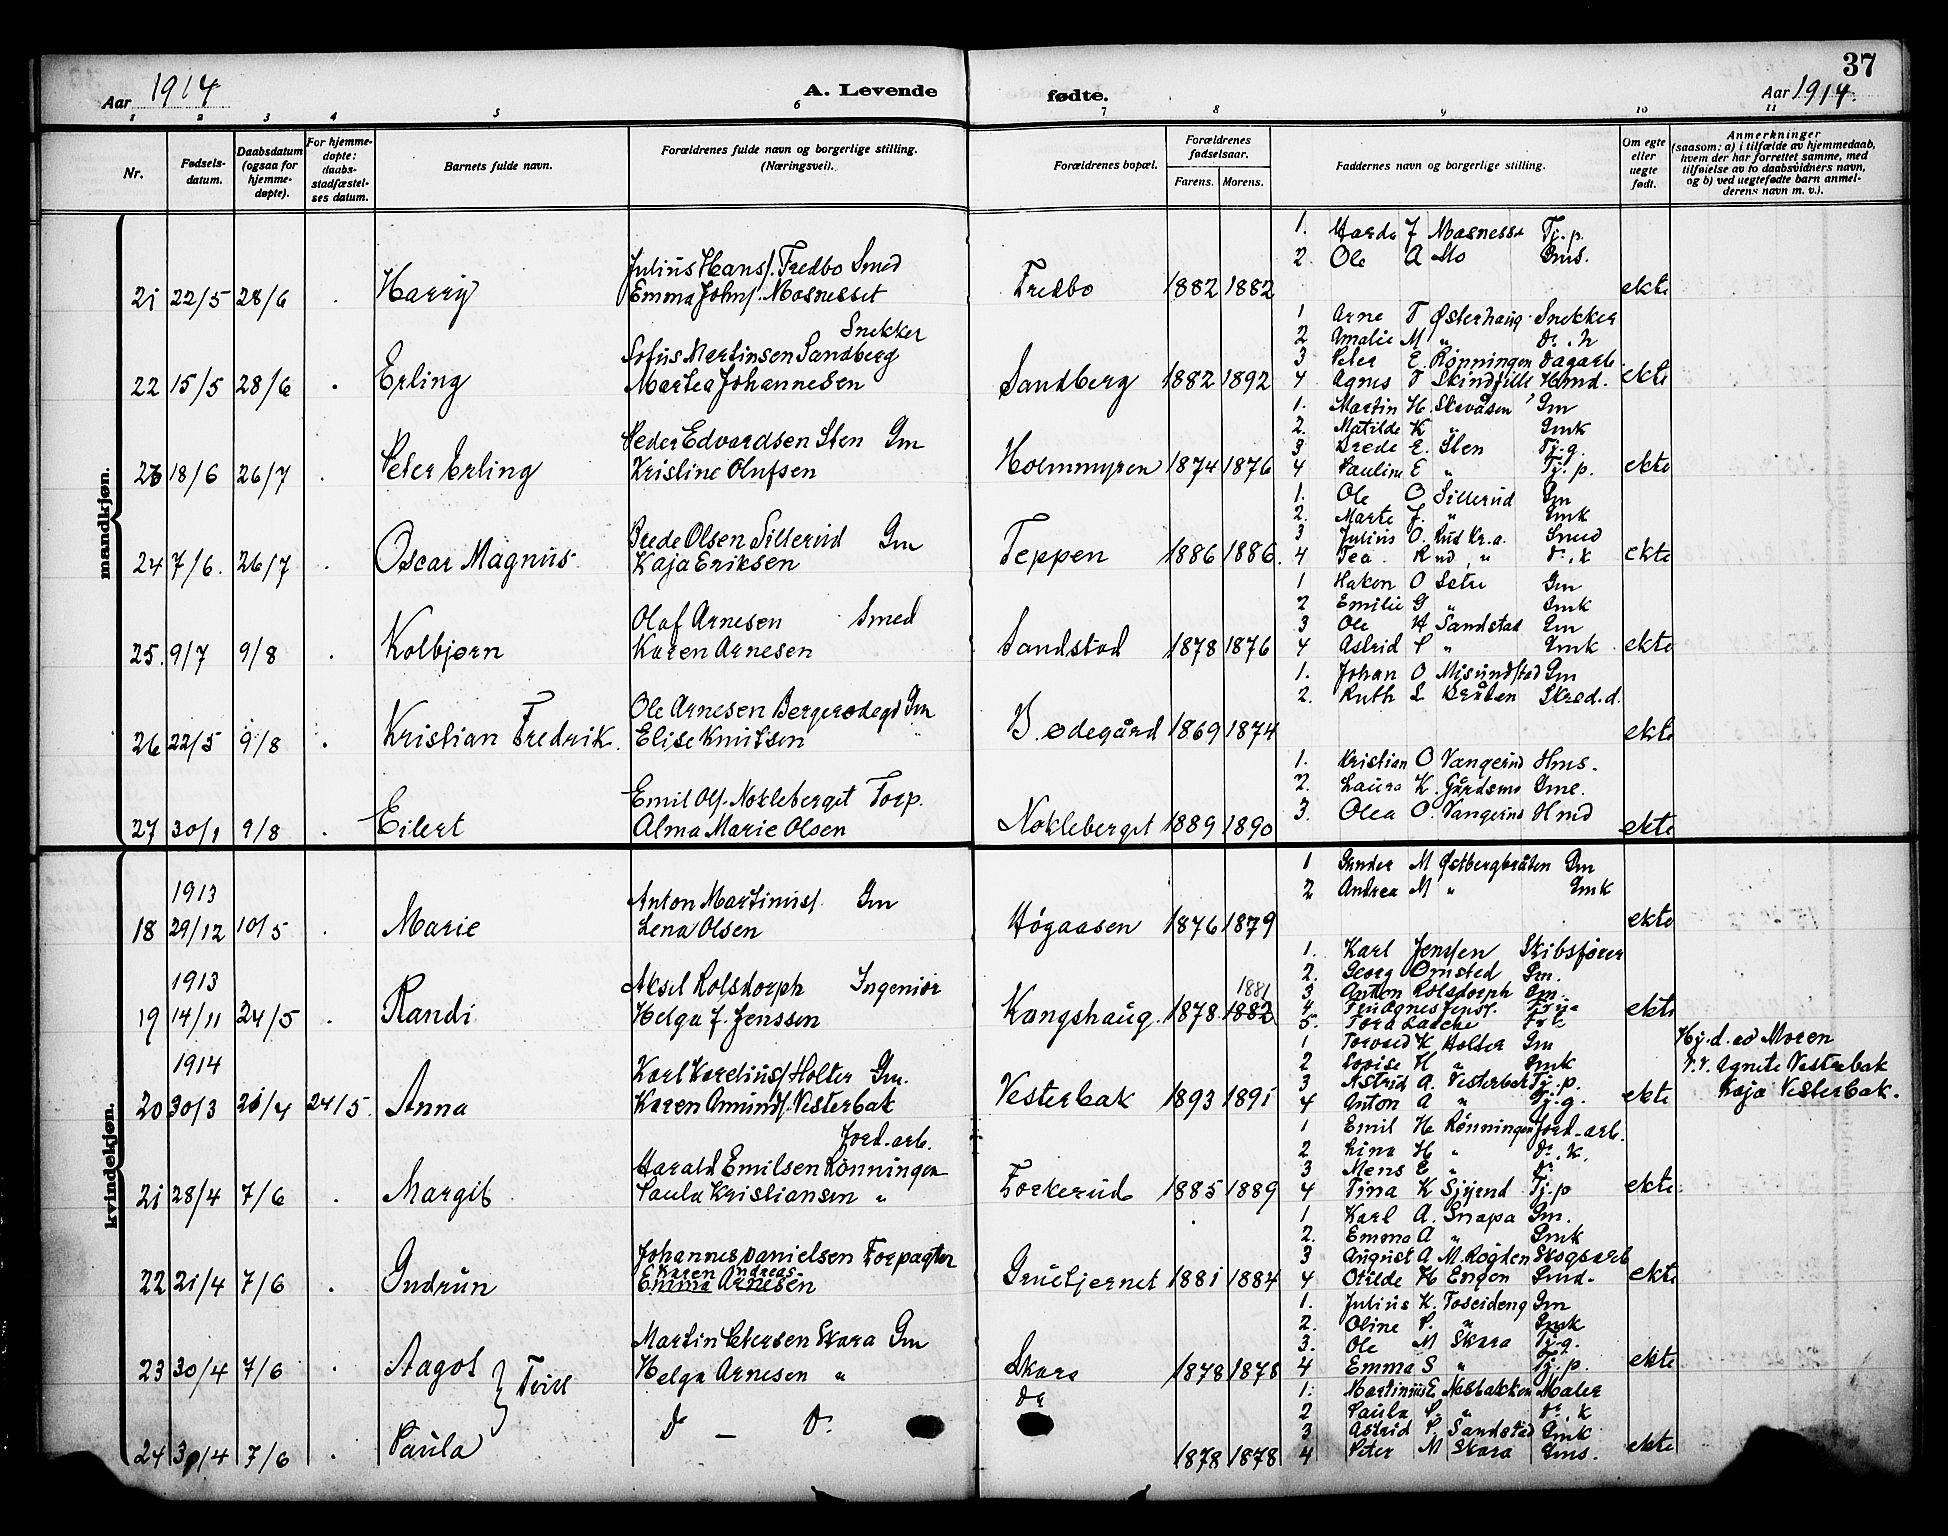 37
Aar 1914
A. Levende
fødte.
Aar 1914.
1 2 3 4 5 6 7 8 9 10 11
Nr.
Fødsels-
datum.
Daabsdatum
(ogsaa for
hjemme-
døpte).
For hjemme-
døpte:
daabs-
stadfæstel-
ses datum.
Barnets fulde navn.
Forældrenes fulde navn og borgerlige stilling.
(Næringsveil.)
Forældrenes bopæl.
Forældrenes
fødselsaar.
Farens. Morens.
Faddernes navn og borgerlige stilling.
Om egte
eller
uegte
født.
Anmerkninger
(saasom: a) i tilfælde av hjemmedaab,
hvem der har forrettet samme, med
tilføielse av to daabsvidners navn,
og b) ved uegtefødte barn anmel-
derens navn m. v.).
mandkjøn.
1. J Mosnesset Tj.p.
2. Ole A Mo Gms.
Julius Hans/. Fredbo Smed
21 22/5 28/6 . Harry Emma Joh/. Mosnesset Fredbo 1882 1882 ekte
1 Arne T Østerhaug Snekker
2 Amalie M " Do. k
3 Peter E. Rønningen dagarb.
4 Agnes T Skindfille Hmd.
Snekker
Sofus Martinsen Sandberg
22 15/5 28/6 . Erling Martea Johannesen Sandberg 1882 1892 ekte
1. Martin H. Skevåsen Gm
2. Matilde K " Gmk
3 Brede E. Sten Tj.g.
4 Pauline E " Tj.p.
Peder Edvardsen Sten Gm
23 18/6 26/7 . Peter Erling Kristine Olufsen Holmmyren 1874 1876 ekte
1. Ole O Sillerud Gm
2. Marte J. " Gmk
3 Julius O. Rud Kr.a. Smed
4 Tea Rud " Do. k
Brede Olsen Sillerud Gm
24 7/6. 26/7 . Oscar Magnus. Kaja Eriksen Teppen 1886 1886. ekte
1 Hakon O Setre Gm
2 Emilie G " Gmk
3 Ole H Sandstad Gm
4 Astrid P " Gmk
Olaf Arnesen Smed
25. 9/7 9/8 . Kolbjørn Karen Arnesen Sandstad 1878 1876 ekte
1. Johan O Misundstad Gm
2. Ruth L Bråten Skred.d.
Ole Arnesen Bergerødegd Gm
26 22/5 9/8 . Kristian Fredrik. Elise Knutsen B. ødegård 1869 1874 ekte
1. Kristian O Vangerud Hms.
2. Laura K. Gårdsmo Gme.
3. Olea O. Vangerud Hmd
Emil Ols. Nokleberget Torp.
27 30/1 9/8 . Eilert Alma Marie Olsen Nokleberget 1889 1890 ekte
kvindekjøn.
1 Gunder M Østbergbråten Gm
2 Andrea M " Gmk
1913
Anton Martinius/. Gm
18 29/12 10/5 . Marie Lena Olsen Høgaasen 1876 1879 ekte
1. Karl Jenssen Skibsfører
2. Georg Omsted Gm.
3 Anton Rolsdorph Gm.
4 Fru Agnes Jens/. Frue
5. Tora Laache Frk
1913
Aksel Rolsdorph Ingeniør
19 14/11 24/5 . Randi Helga J. Jenssen Kongshaug. 1878 1882 1881 ekte
1 Torvard K Holter Gm
2 Lovise H " Gmk
3 Astrid A. Vesterbak Tj.p.
4 Anton A " Tj.g.
1914
Karl Karelius/ Holter Gm.
20 30/3 21/4 24/5. Anna Karen Amund/. Vesterbak Vesterbak 1893 1891 ekte
Hj.d. av Moren
V.V. Agnete Vesterbak
Kaja Vesterbak.
1 Emil H. Rønningen Jord-arb.
2 Lina H " Do. K.
3 Mens E " Do
4 Tina K Tj.p
Jord-arb.
Harald Emilsen Rønningen
21 28/4 7/6 . Margit Paula Kristiansen " Torkerud 1885 1889 ekte
1 Karl A. Snapa Gm.
2. Emma A " Gmk
3 August A M. Røgden Skogsarb
4 Otilde H Engen Gmd.
Johannes Danielsen Forpagter
Karen Andreas-
22 21/4 7/6 . Gudrun Emma Arnesen Gruetjernet 1881 1884 ekte
1. Julius K. Toseideng Gm
2. Oline P. " Gmk
3. Ole M Skara Tj.g.
4 Emma S " Tj.p.
Martin Petersen Skara Gm
23 30/4 7/6 . Aagot } Tvill Helga Arnesen " Skara 1878 1878 ekte
1. Martinius E Nastakken Maler
2 Paula P. " Do. k
3 Astrid P. Sandstad Gmk
4 Peter M Skara Gms.
24 30/4 7/6 . Paula Do — Do. Do 1878 1878 ekte